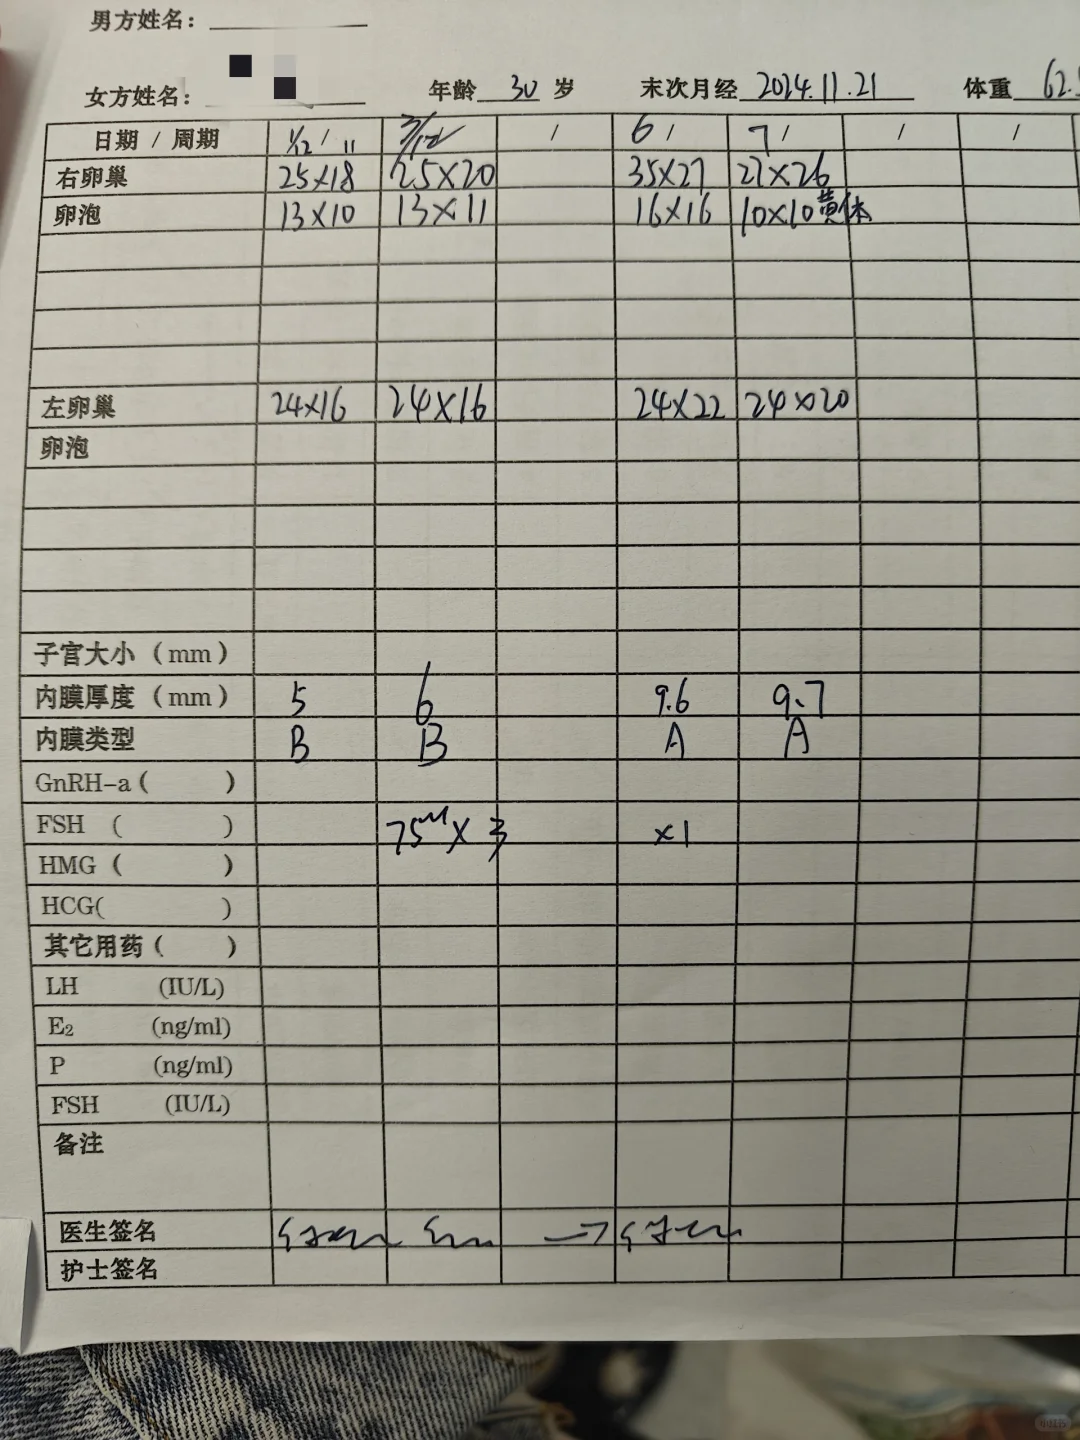 男方姓名：
女方姓名： 年龄 30 岁 末次月经 2024.11.21 体重 62.5
日期 / 周期 1/12 / 11 3/12 / 6 / 7 / / /
右卵巢 25×18 25×20 35×27 27×26
卵泡 13×10 13×11 16×16 10×10黄体
左卵巢 24×16 24×16 24×22 24×20
卵泡
子宫大小（mm）
内膜厚度（mm） 5 6 9.6 9.7
内膜类型 B B A A
GnRH-a（ ）
FSH （ ） 75 × 3 ×1
HMG（ ）
HCG( )
其它用药（ ）
LH (IU/L)
E₂ (ng/ml)
P (ng/ml)
FSH (IU/L)
备注
医生签名
护士签名